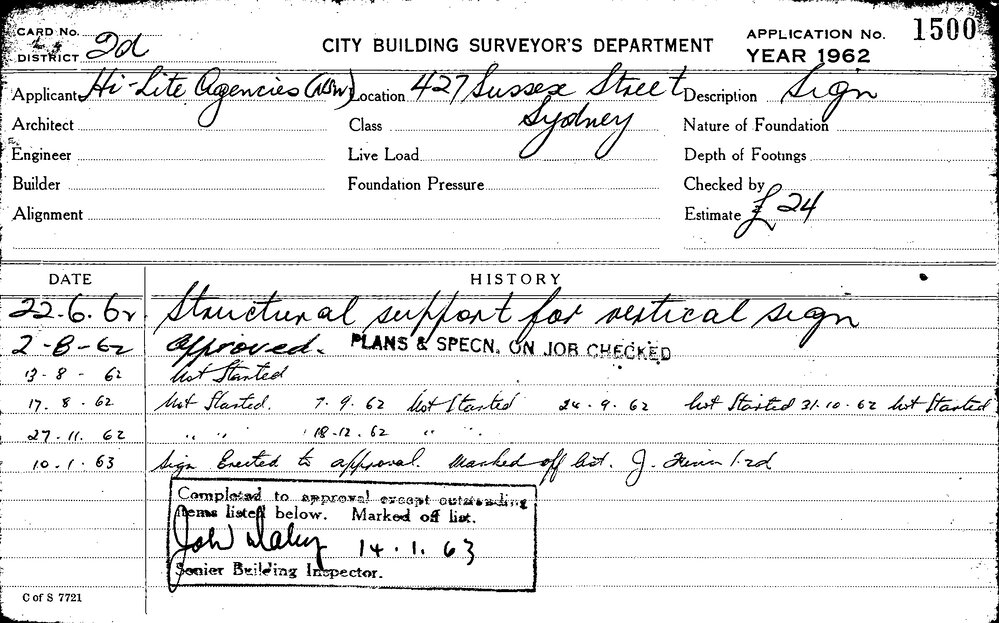 CARD No.
DISTRICT 2d
CITY BUILDING SURVEYOR'S DEPARTMENT
APPLICATION No. 1500
YEAR 1962
Applicant Hi-Lite Agencies (NSW) Location 427 Sussex Street Description Sign
Sydney
Architect Class Nature of Foundation
Engineer Live Load Depth of Footings
Builder Foundation Pressure Checked by
Alignment Estimate £24
DATE HISTORY
22.6.62 Structural support for vertical sign
2-8-62 Approved. PLANS & SPECN. ON JOB CHECKED
13-8-62 Not Started
17.8.62 Not Started. 7.9.62 Not Started 24.9.62 Not Started 31.10.62 Not Started
27.11.62 " " 18-12.62 " "
10.1.63 Sign Erected to approval. Marked off list. J.
Completed to approval except outstanding
items listed below. Marked off list.
14.1.63
Senior Building Inspector.
C of S 7721